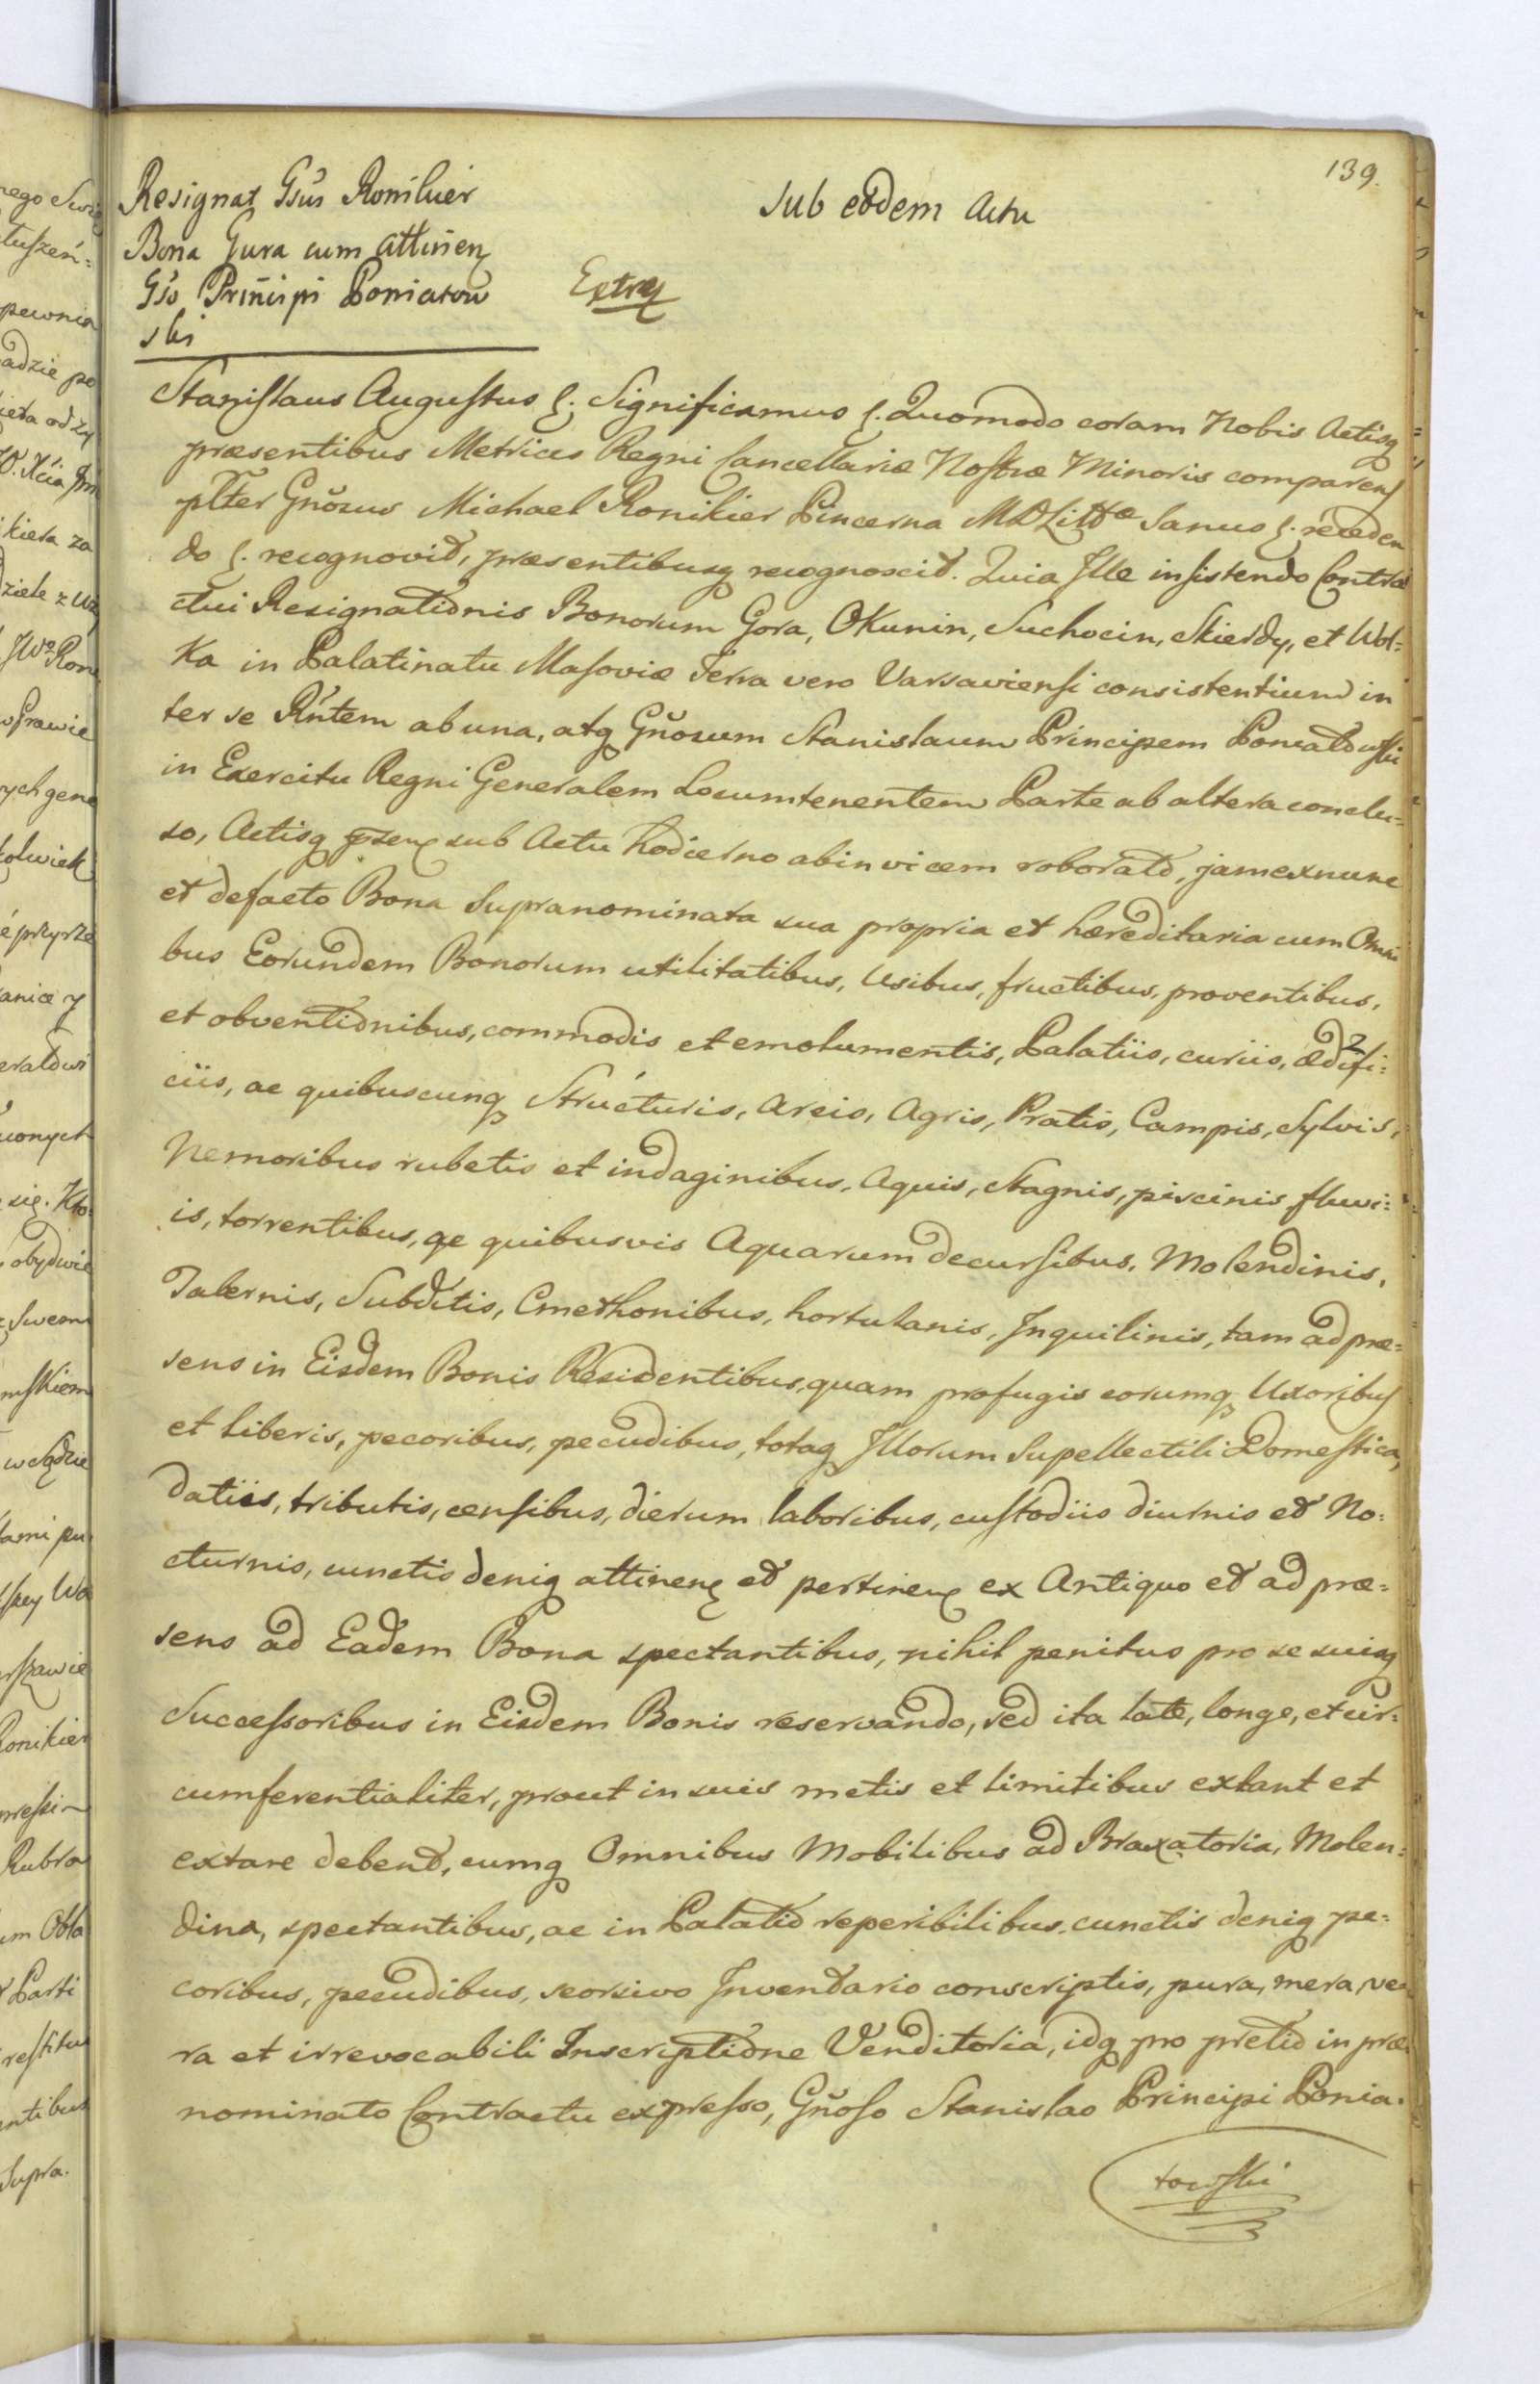 139.
Resignat Gsus Ronikier
Bona Gura cum attineñ
Gso Principi Poniatow
ski
Sub eodem Actu
Extrx
Stanislaus Augustus &. Significamus &. Quomodo coram Nobis Actisq
præsentibus Metrices Regni Cancellariæ Nostræ Minoris comparens
plter Gnosus Michael Ronikier Pincerna MDLittæ Sanus &. receden
do &. recognovit, præsentibusq recognoscit. Quia Ille insistendo Contra
ctui Resignationis Bonorum Gora, Okunin, Suchocin, Skierdy, et Wol=
ka in Palatinatu Masoviæ Terra vero Varsaviensi consistentium in
ter se Rntem ab una, atq Gnosum Stanislaum Principem Poniatowski
in Exercitu Regni Generalem Locumtenentem Parte ab altera conclu=
so, Actisq præsen sub Actu hodierno abinvicem roborato, jam exnunc
et defacto Bona Supranominata sua propria et hæreditaria cum Omni
bus Eorundem Bonorum utilitatibus, Usibus, fructibus, proventibus,
et obventionibus, commodis et emolumentis, Palatiis, curiis, ædifi=
ciis, ac quibuscunq Structuris, Areis, Agris, Pratis, Campis, Sylvis,
Nemoribus rubetis et indaginibus, Aquis, Stagnis, piscinis fluvi=
is, torrentibus, ac quibusvis Aquarum decursibus, Molendinis,
Tabernis, Subditis, Cmethonibus, hortulanis, Inquilinis, tam ad præ=
sens in Eisdem Bonis Residentibus, quam profugis eorumq Uxoribus
et liberis, pecoribus, pecudibus, totaq Illorum Supellectili Domestica,
datiis, tributis, censibus, dierum laboribus, custodiis diurnis et No=
cturnis, cunctis deniq attinen et pertinen ex Antiquo et ad præ=
sens ad Eadem Bona spectantibus, nihil penitus pro se suisq
Successoribus in Eisdem Bonis reservando, sed ita late, longe, et cir=
cumferentialiter, prout in suis metis et limitibus extant et
extare debent, cumq Omnibus Mobilibus ad Braxatoria, Molen=
dina, spectantibus, ac in Palatio reperibilibus, cunctis deniq pe=
coribus, pecudibus, seorsivo Inventario conscriptis, pura, mera, ve
ra et irrevocabili Inscriptione Venditoria, idq pro pretio in præ
nominato Contractu expresso, Gnoso Stanislao Principi Ponia=
towski